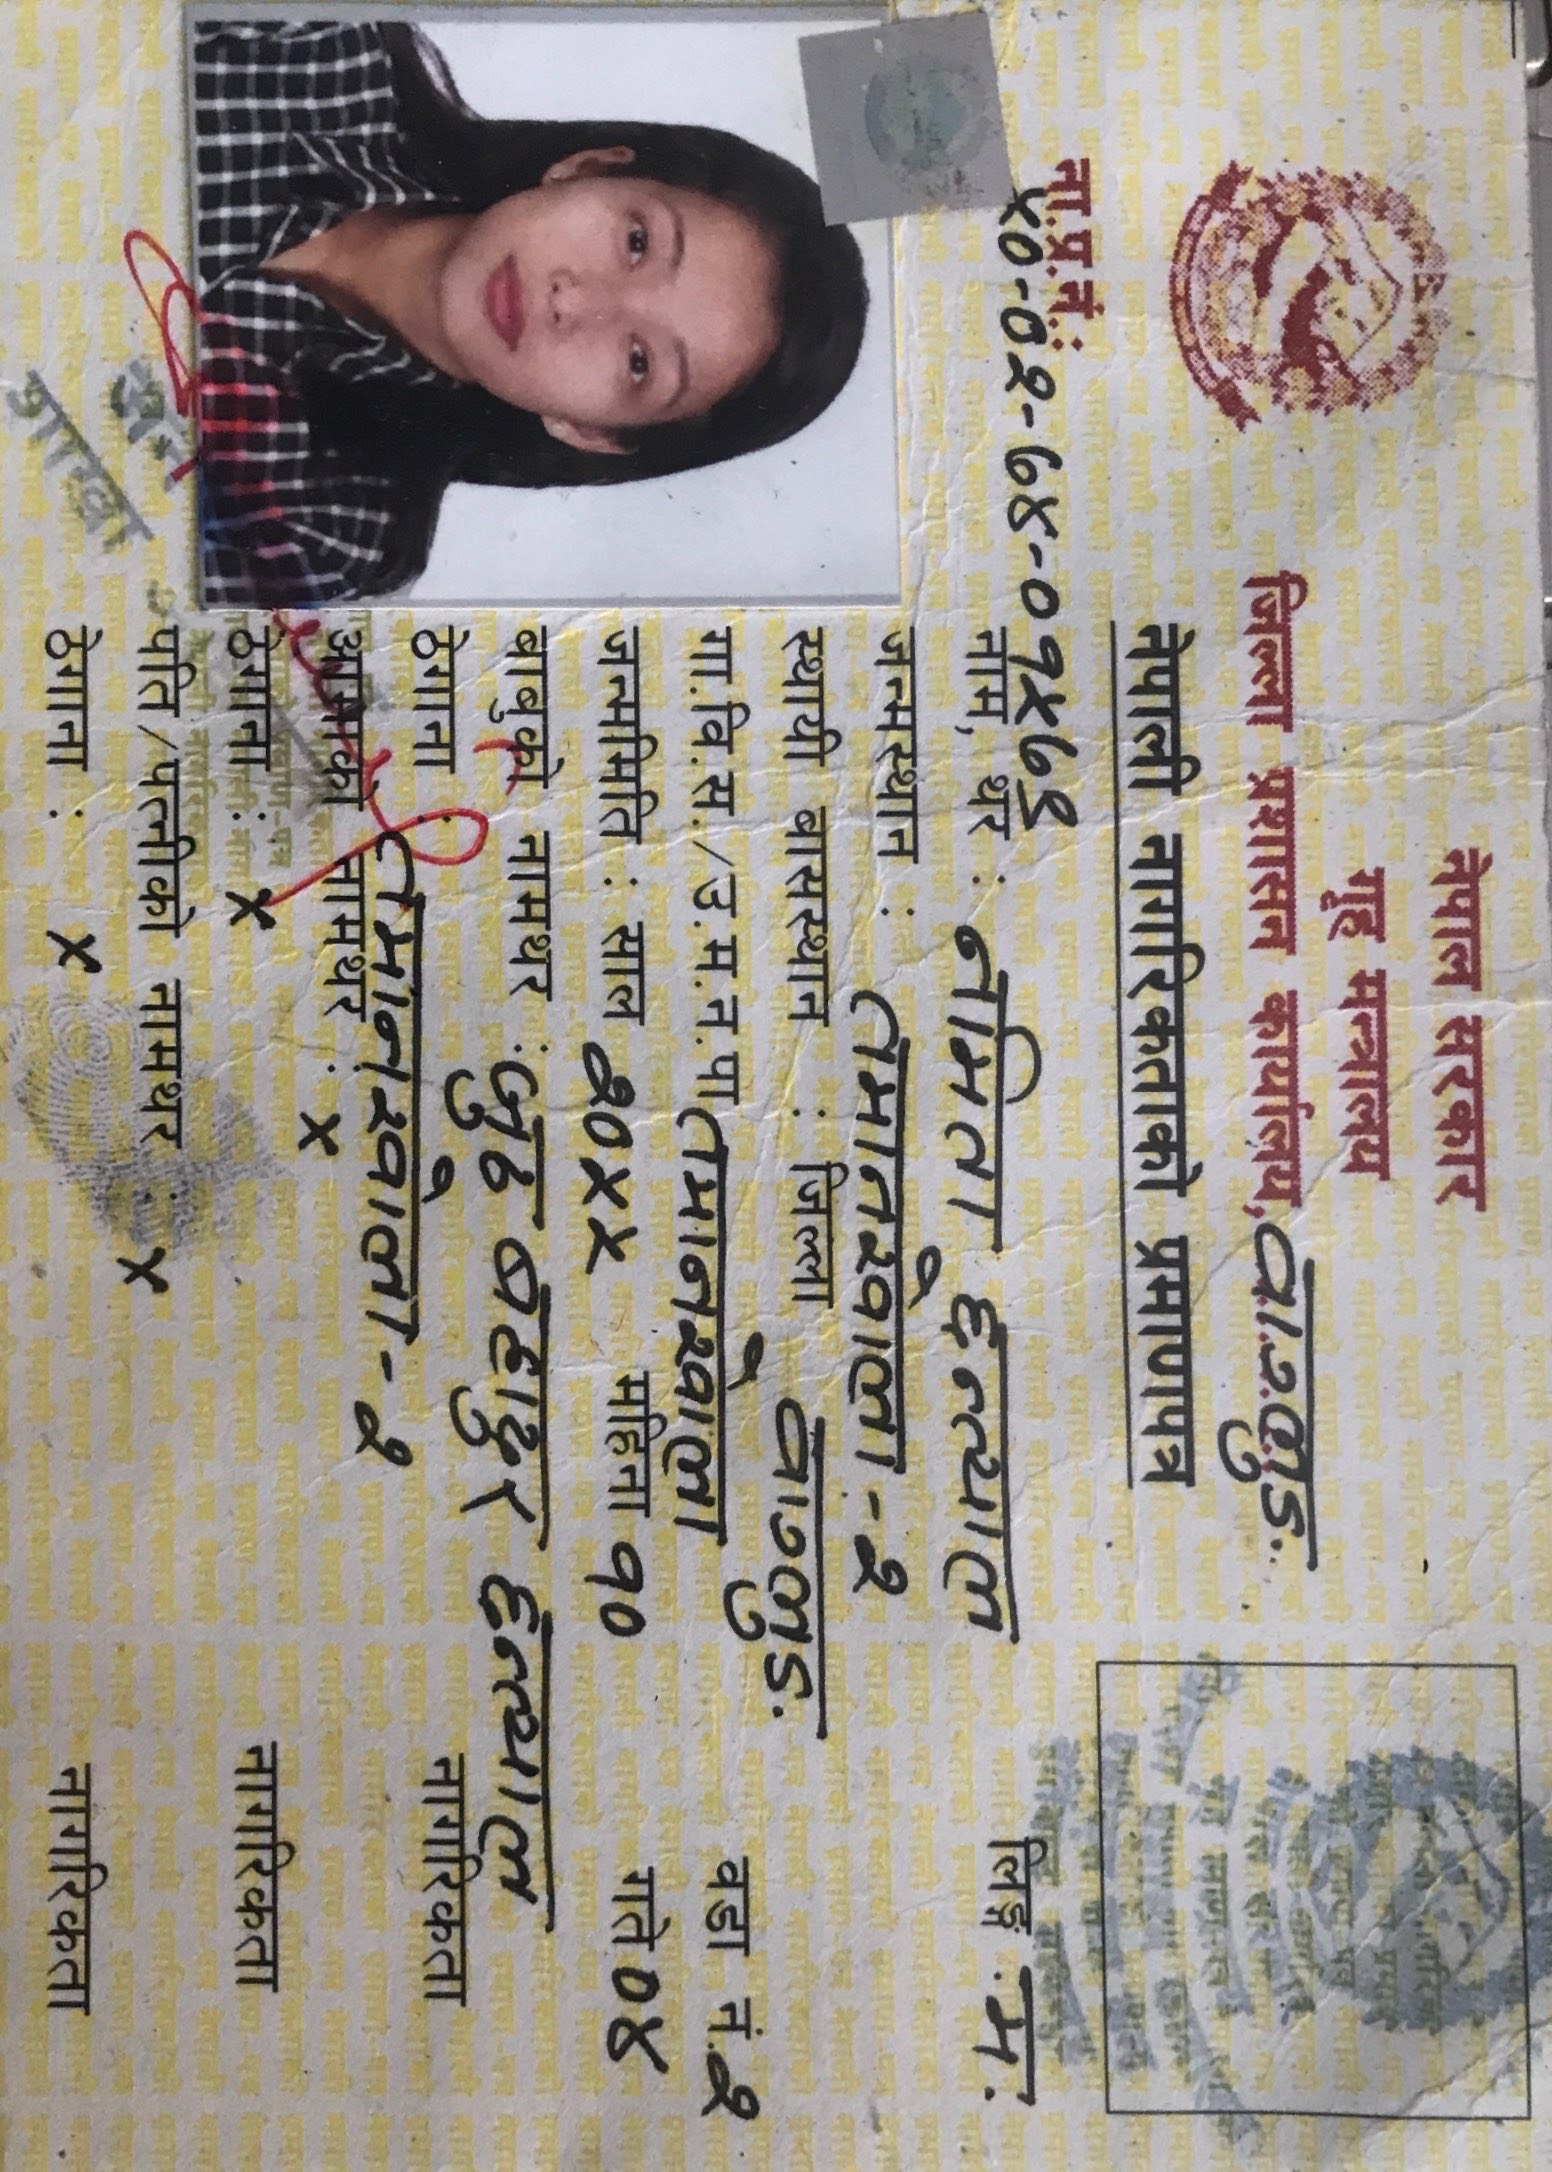 नेपाल सरकार
गृह मन्त्रालय
जिल्ला प्रशासन कार्यालय, वाग्लुङ
नेपाली नागरिकताको प्रमाणपत्र
ना.प्र.नं.:
५०-०२-७४-०१५७९
नाम, थर : नमिता छन्त्याल लिङ्ग म.
जन्मस्थान : तमानखोला - २
स्थायी बासस्थान : जिल्ला वाग्लुङ
गा.वि.स./उ.म.न.पा तमानखोला वडा नं. २
जन्ममिति : साल २०५५ महिना १० गते ०४
बाबुको नामथर : जुठ बहादुर छन्त्याल
ठेगाना : तमानखोला - २ नागरिकता
आमाको नामथर : x
ठेगाना : x नागरिकता
पति/पत्नीको नामथर : x
ठेगाना : x नागरिकता
शाखा